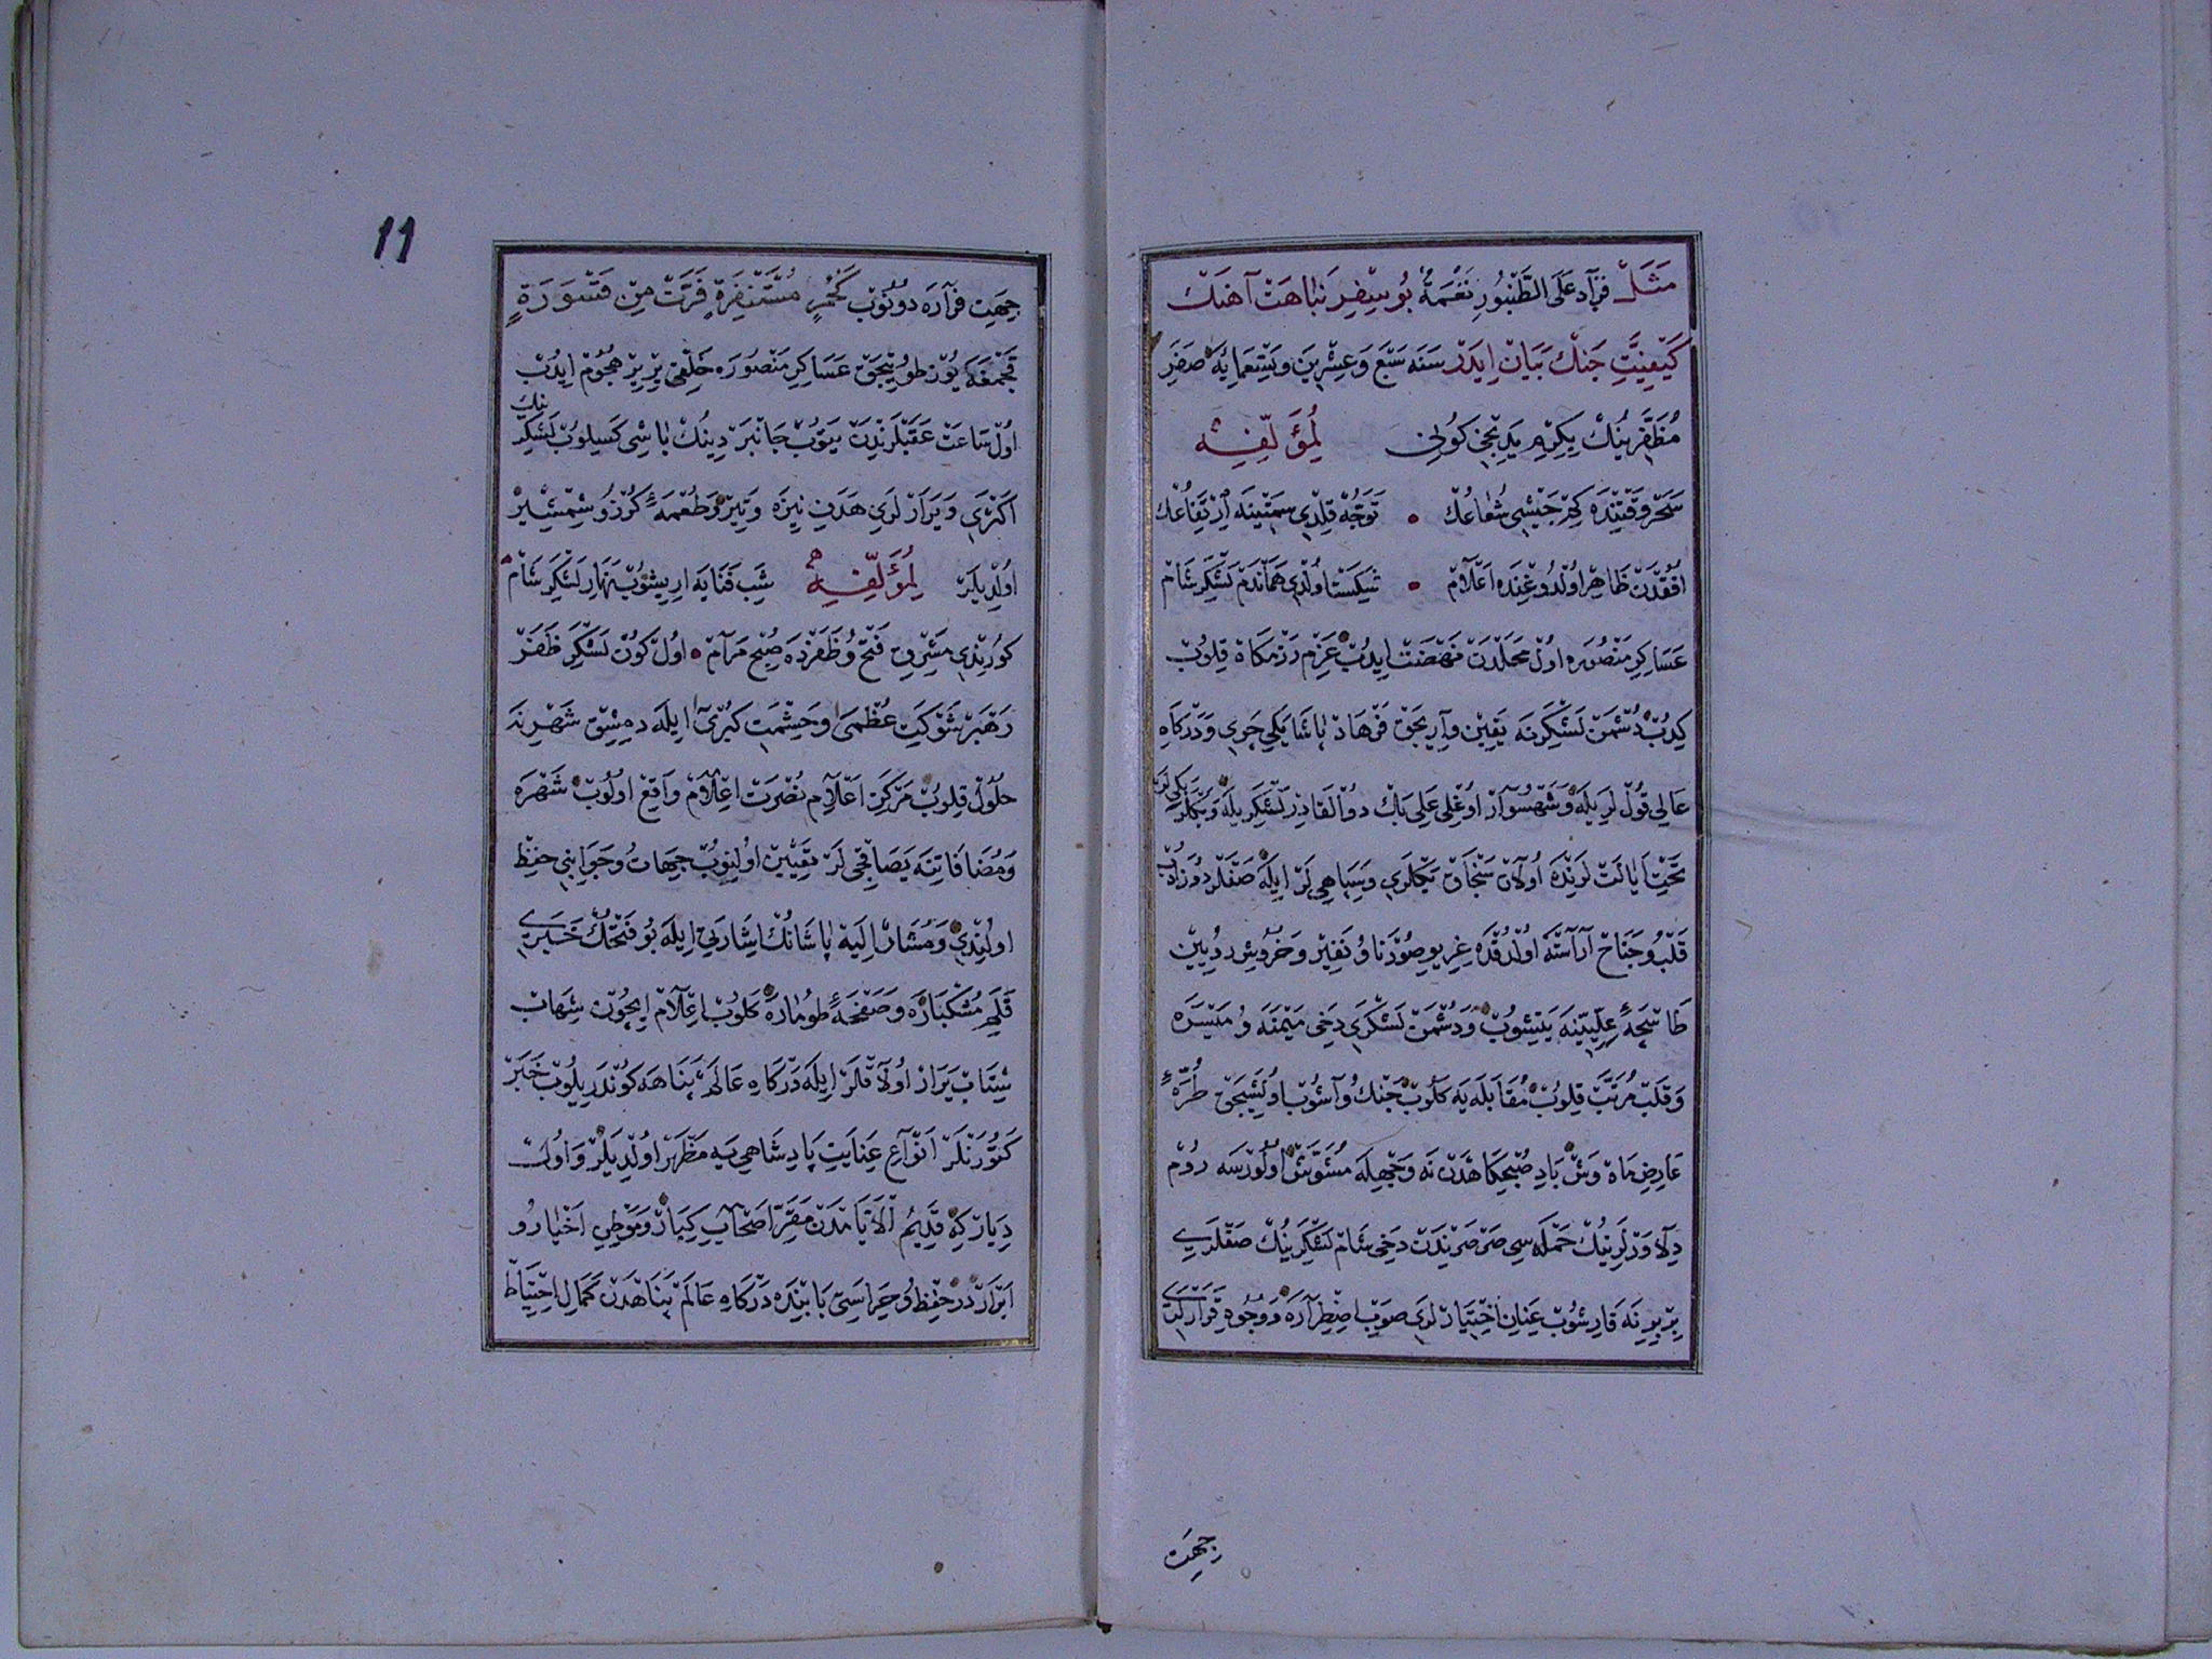 مَثَل فَزَادَ عَلَى الطُّنْبُورِ نَغْمَةً بُو سِفِر نَبَاهَتْ آهَنْك
كَيْفِيَّتِ جَنْك بَيَانْ اِيدَرْ سَنَه سَبْع وَعِشْرِينَ وَتِسْعَمِائَه صَفَرِ
مُظَفَّرِينُكْ يِكِرْمِ يَدِنْجِى كُونِى لِمُؤَلِّفِهِ
سَحَرْ وَقْتِنْدَه كِمْ جَيْشِى شُعَاعُكْ تَوَجُّهْ قِلْدِى سَمْتِينَه اِرْتِفَاعُكْ
اُفُقْدَنْ ظَاهِرْ اُولْدُوغِنْدَه اَعْلَامْ شِكَسْتْ اُولْدِى هَمَانْدَمْ لَشْكَرِ شَامْ
عَسَاكِرِ مَنْصُورَه اُولْ مَحَلْدَنْ نَهْضَتْ اِيدُبْ عَزْمِ رَزْمكَاهْ قِلُوبْ
كِدُبْ دُشْمَنْ لَشْكَرِنَه يَقِينْ وَارِيجَقْ فَرْهَادْ پَاشَا يَكِيچَرِى وَدَرْكَاهِ
عَالِى قُولْلَرِيلَه وَشَهْسُوَارْ اُوغْلِى عَلِى بَكْ ذُوالْقَادِرْ لَشْكَرِيلَه وَبَكْلَرْبَكِىلَرْ
تَحْتِ اَيَالَتْلَرِنْدَه اُولَانْ سَنْجَاقْ بَكْلَرِى وَسِپَاهِىلَرْ اِيلَه صَفْلَرْ دُوزَدُبْ
قَلْبُ وجَنَاحْ آرَاسْتَه اُولْدُقْدَه غِرِيوِ صُورْنَا وُ نَفِيرْ وَخُرُوشِ رُويِينْ
طَاسْ چَرْخِ عِلِّيِّينَه يَتِيشُوبْ وَدُشْمَنْ لَشْكَرِى دَخِى مَيْمَنَه وُ مَيْسَرَه
وَقَلْبْ مُرَتَّبْ قِلُوبْ مُقَابَلَه يَه كَلُوبْ جَنْك وُ آشُوبْ اُولِيشِيجَقْ طُرَّهٔ
عَارِضِ مَاهْ وَشْ بَادِ صُبْحكَاهْدَنْ نَه وَجْهِلَه مُشَوَّشْ اُولُورْسَه رُومْ
دِلَاوَرْلَرِينُكْ حَمْلَه سِى صَرْصَرِنْدَنْ دَخِى شَامْ لَشْكَرِينُكْ صَفْلَرِى
بِرْبِرِنَه قَارِشُوبْ عِنَانِ اخْتِيَارْلَرِى صَوْبِ اضْطِرَارَه وَوُجُوهِ قَرَارْلَرِى
جِهَتِ
جِهَتِ فِرَارَه دُونُوبْ كَحُمُرٍ مُسْتَنْفِرَةٍ فَرَّتْ مِنْ قَسْوَرَةٍ
قَچْمَغَه يُوزْ طُوتِيجَقْ عَسَاكِرِ مَنْصُورَه خَلْفِى يِرْيِرْ هُجُومْ اِيدُبْ
اُولْ سَاعَتْ عَقَبْلَرِنْدَنْ يَتُوبْ جَانْبَرْدِينُكْ بَاشِى كَسِيلُوبْ لَشْكَرِ نِكْ
اَكْثَرِى وَيَرَارْلَرِى هَدَفِ نِيزَه وَتِيرْ وَطُعْمَهٔ كُورْزُ و شِمْشِيرْ
اُولْدِيلَرْ لِمُؤَلِّفِهِ شَبِ فَنَايَه اِرِيشُوبْ نَهَارِ لَشْكَرِ شَامْ
كُورِنْدِى مَشْرِقِ فَتْح وُظَفَرْدَه صُبْحِ مَرَامْ اُولْ كُونْ لَشْكَرِ ظَفَرْ
رَهْبَرْ شَوْكَتِ عُظْمَى وحِشْمَتِ كُبْرَى اِيلَه دِمِشْقْ شَهْرِنَه
حُلُولْ قِلُوبْ مَرْكَزِ اَعْلَامِ نُصْرَتْ اِعْلَامْ وَاقِعْ اُولُوبْ شَهْرَه
وَمُضَافَاتِنَه يَصَاقْجِىلَرْ تَعْيِينْ اُولِنُوبْ جِهَاتُ وجَوَانِبِى حِفْظ
اُولِنْدِى وَمُشَارٌ اِلَيْه پَاشَانُكْ اِشَارَتِى اِيلَه بُو فَتْحُكْ خَبَرِى
قَلَمِ مُشْكْبَارَه وَصَفْحَهٔ طُومَارَه كَلُوبْ اِعْلَامْ اِيچُونْ شِهَابْ
شِتَابْ يَرَارْ اُولَاقْلَرْ اِيلَه دَرْكَاهِ عَالَمْ پَنَاهَه كُونْدَرِيلُوبْ خَبَرْ
كَتُورَنْلَرْ اَنْوَاعِ عِنَايَتِ پَادِشَاهِى يَه مَظْهَرْ اُولْدِيلَرْ وَاُولْ
دِيَارْ كِه قَدِيمُ الْاَيَّامْدَنْ مَقَرِّ اَصْحَابِ كِبَارْ وَمَوْطِنِ اَخْيَارُ و
اَبْرَارْدُرْ حِفْظُ وحِرَاسَتِى بَابِنْدَه دَرْكَاهِ عَالَمْ پَنَاهْدَنْ كَمَالِ احْتِيَاطْ
11